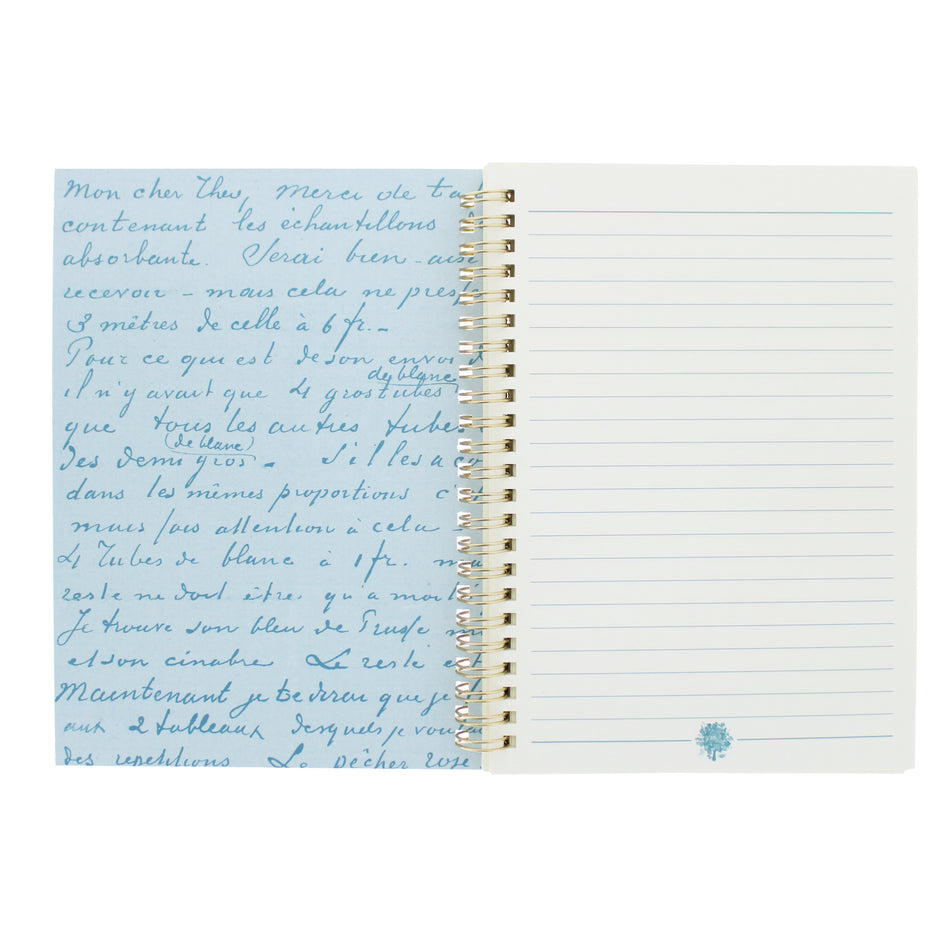 Mon cher Theo, Merci de ta
contenant les échantillons
absorbante. Serai bien-aise
recevoir – mais cela ne presse
3 mètres de celle à 6 fr. –
Pour ce qui est de son envoi
de blanc
il n'y avait que 4 gros tubes
que tous les autres tubes
(de blanc)
des demi gros – S'il les a co
dans les mêmes proportions c'
mais fais attention à cela –
4 Tubes de blanc à 1 fr. ma
reste ne doit être qu'a moiti
Je trouve son bleu de Prusse m
et son cinabre Le reste est
Maintenant je te dirai que je
aux 2 tableaux desquels je voulai
des repetitions Le pêcher rose